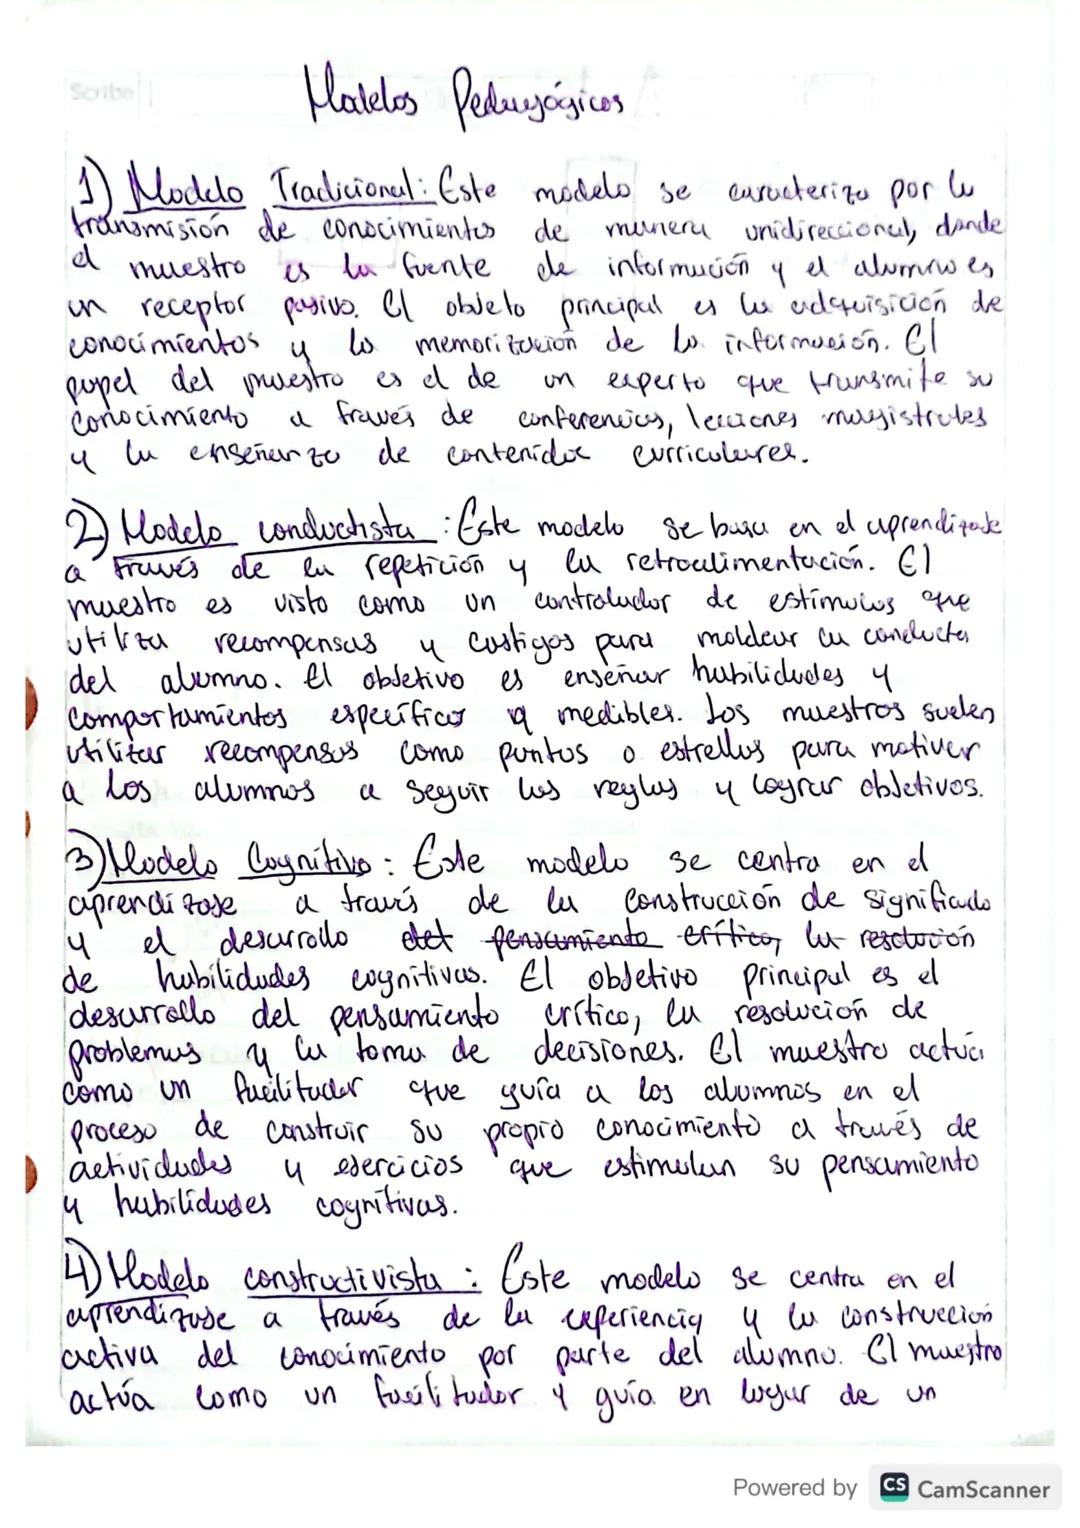 Scribe
Modelos Pedagógicos
1) Modelo Tradicional: Este modelo se caracteriza por la
transmisión de conocimientos de manera unidireccional, donde
el maestro es la fuente de información y el alumno es
un receptor pasivo. El objeto principal es la adquisición de
conocimientos y la memorización de la información. El
papel del maestro es el de un experto que transmite su
conocimiento a través de conferencias, lecciones magistrales
y la enseñanza de contenidos curriculares.
2) Modelo conductista : Este modelo se basa en el aprendizaje
a través de la repetición y la retroalimentación. El
maestro es visto como un controlador de estímulos que
utiliza recompensas y castigos para moldear la conducta
del alumno. El objetivo es enseñar habilidades y
comportamientos específicos y medibles. Los maestros suelen
utilizar recompensas como puntos o estrellas para motivar
a los alumnos a seguir las reglas y lograr objetivos.
3) Modelo Cognitivo : Este modelo se centra en el
aprendizaje a través de la construcción de significado
y el desarrollo del pensamiento crítico, la resolución
de habilidades cognitivas. El objetivo principal es el
desarrollo del pensamiento crítico, la resolución de
problemas y la toma de decisiones. El maestro actúa
como un facilitador que guía a los alumnos en el
proceso de construir su propio conocimiento a través de
actividades y ejercicios que estimulan su pensamiento
y habilidades cognitivas.
4) Modelo constructivista : Este modelo se centra en el
aprendizaje a través de la experiencia y la construcción
activa del conocimiento por parte del alumno. El maestro
actúa como un facilitador y guía en lugar de un
Powered by CS CamScanner